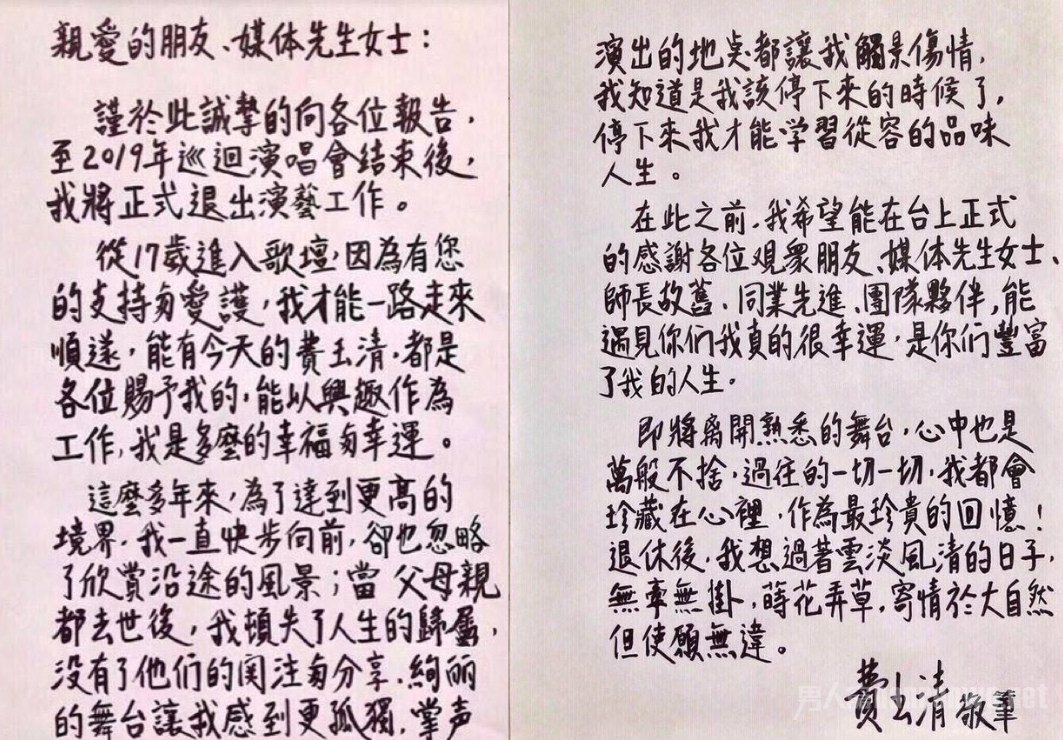 親愛的朋友、媒体先生女士：
謹於此誠摯的向各位報告，
至2019年巡迴演唱會结束後，
我將正式退出演藝工作。
從17歲進入歌壇，因為有您
的支持匇愛護，我才能一路走來
順遂，能有今天的費玉清，都是
各位賜予我的，能以興趣作為
工作，我是多麼的幸福匇幸運。
這麼多年來，為了達到更高的
境界，我一直快步向前，卻也忽略
了欣賞沿途的風景；當父母親
都去世後，我頓失了人生的歸屬，
没有了他们的関注匇分享，絢丽
的舞台讓我感到更孤獨，掌声
演出的地点都讓我觸景傷情，
我知道是我該停下來的時候了，
停下來我才能学習從容的品味
人生。
在此之前，我希望能在台上正式
的感謝各位观衆朋友、媒体先生女士、
師長故舊、同業先進、团隊夥伴，能
遇見你们我真的很幸運，是你们豐富
了我的人生。
即將离開熟悉的舞台，心中也是
萬般不捨，過往的一切一切，我都會
珍藏在心裡，作為最珍貴的回憶！
退休後，我想過著雲淡風清的日子，
無牽無掛，蒔花弄草，寄情於大自然
但使願無違。
費玉清 敬筆